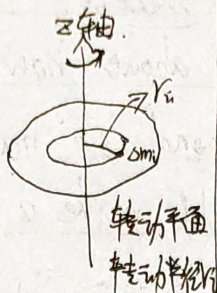 z轴
rᵢ
Δmᵢ
转动平面
转动半径rᵢ